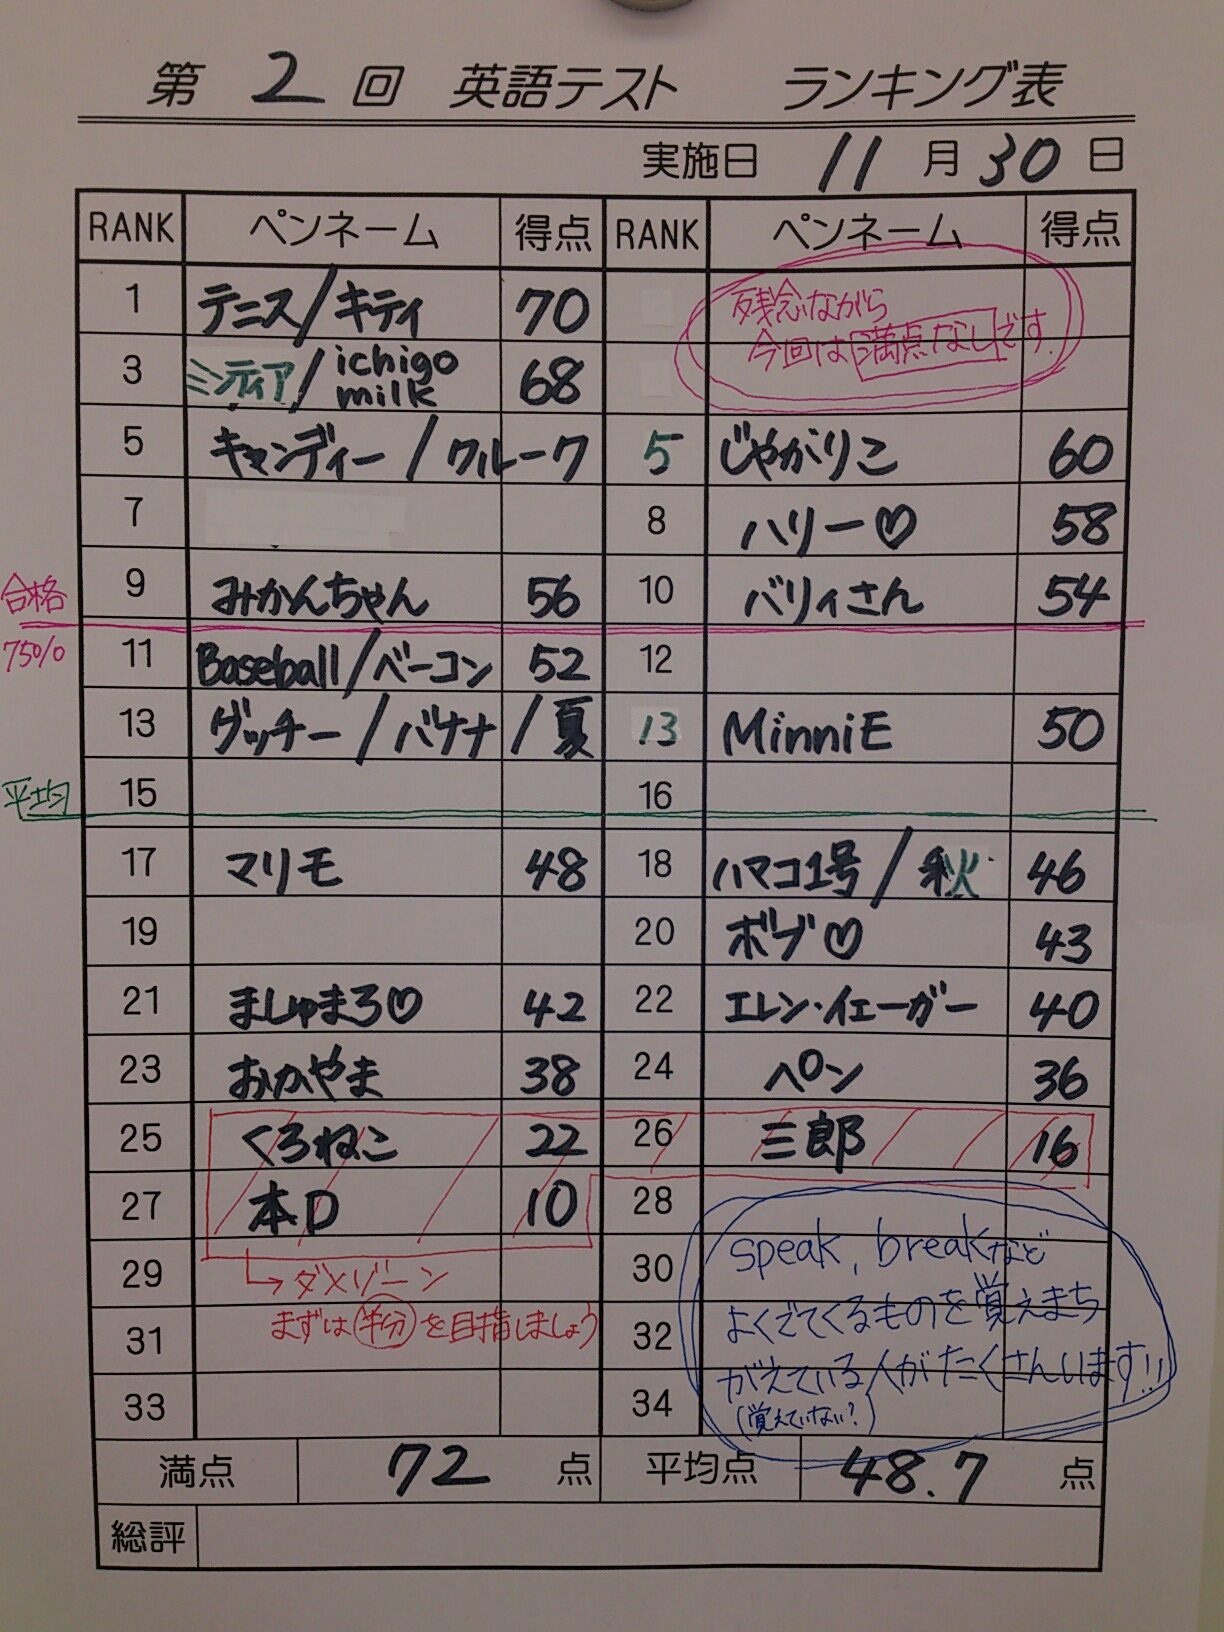 第 2 回 英語テスト ランキング表
実施日 11 月 30 日
RANK ペンネーム 得点 RANK ペンネーム 得点
1 テニス/キティ 70
残念ながら
今回は満点なしです.
3 ミンティア/ichigo milk 68
5 キャンディー/クルーク 5 じゃがりこ 60
7 8 ハリー♡ 58
9 みかんちゃん 56 10 バリィさん 54
合格
75%
11 Baseball/ベーコン 52 12
13 グッチー/バナナ/夏 13 MinniE 50
平均
15 16
17 マリモ 48 18 ハマコ1号/秋 46
19 20 ボブ♡ 43
21 ましゅまろ♡ 42 22 エレン・イェーガー 40
23 おかやま 38 24 ペン 36
25 くろねこ 22 26 三郎 16
27 本D 10 28
29 30
31 32
33 34
→ダメゾーン
まずは半分を目指しましょう
speak, breakなど
よくでてくるものを覚えまち
がえている人がたくさんいます!!
(覚えていない?)
満点 72 点 平均点 48.7 点
総評